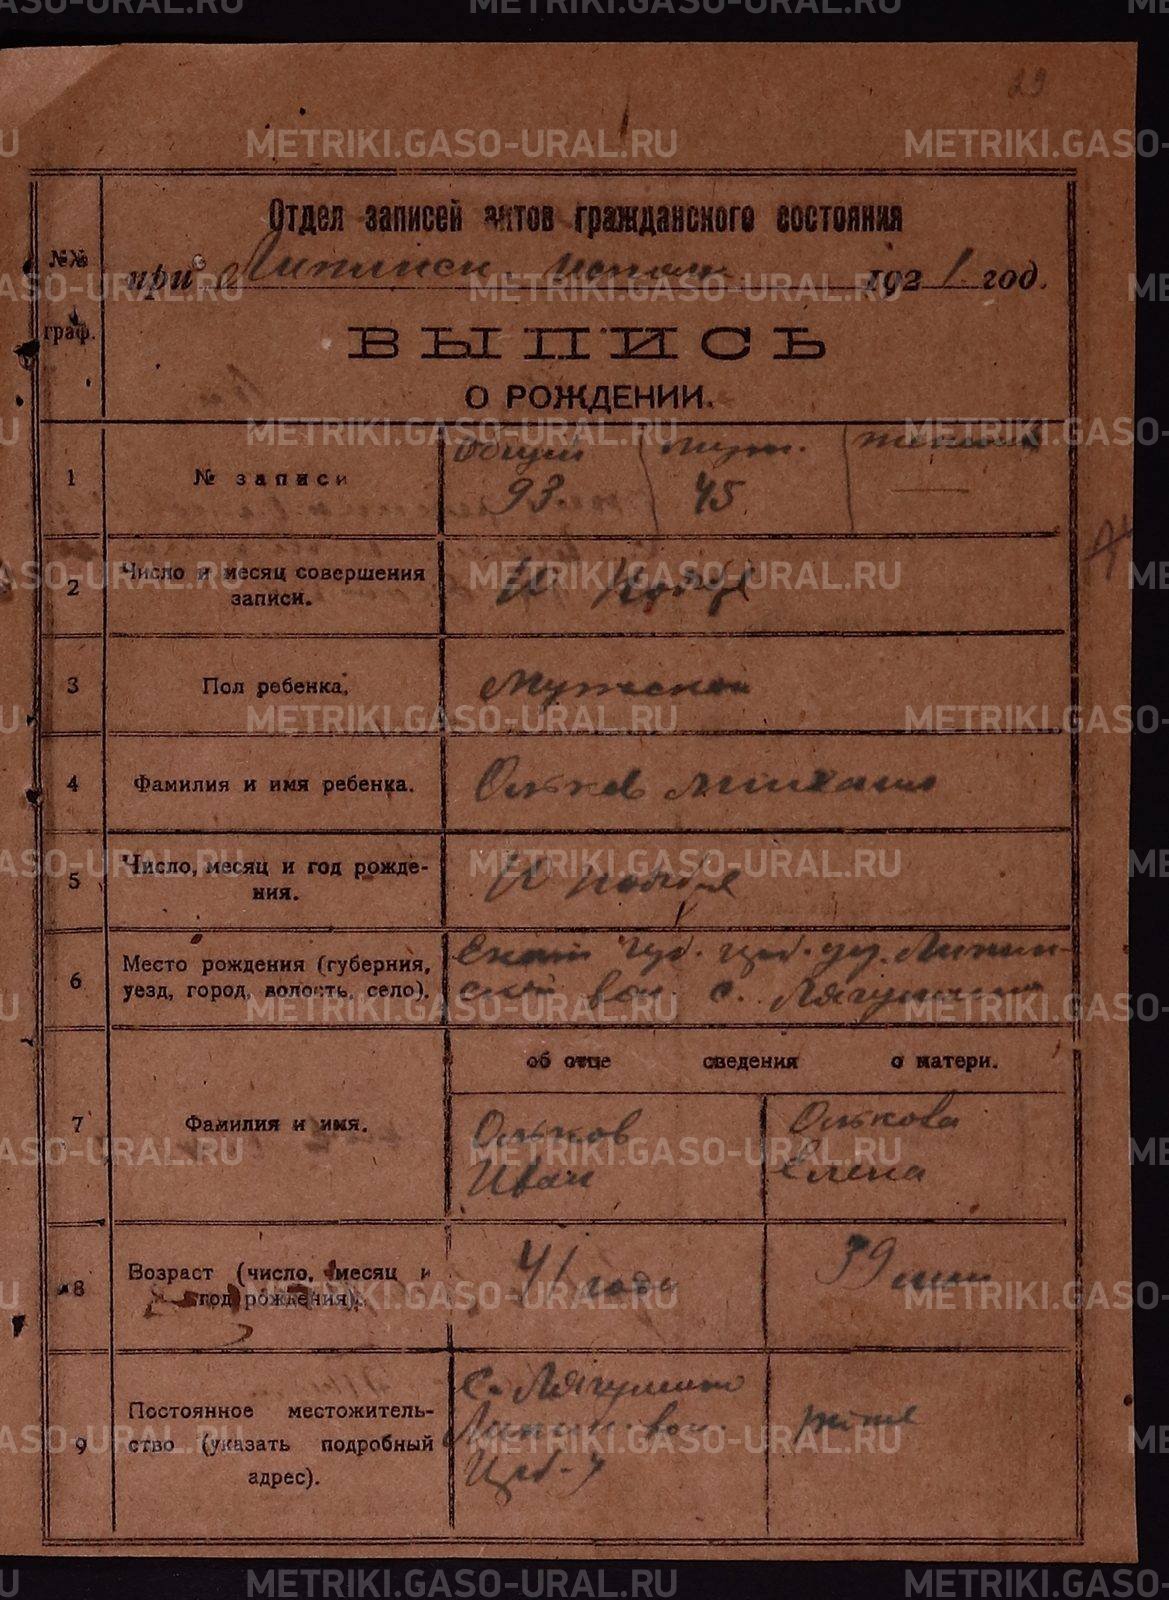 29
Отдел записей актов гражданского состояния
№№ граф.
при исполк 1921 год.
ВЫПИСЬ
О РОЖДЕНИИ.
1 № записи Общий Муж. Женский
93. 45. —
2 Число и месяц совершения
записи. 10 Ноября
3 Пол ребенка. Мужской
4 Фамилия и имя ребенка. Ольков Михаил
5 Число, месяц и год рожде-
ния. 10 ноября
6 Место рождения (губерния,
уезд, город, волость, село). Екат губ. уез. Липин-
ской вол. с. Лягушино
об отце сведения о матери.
7 Фамилия и имя. Ольков Олькова
Иван Елена
8 Возраст (число, месяц и
год рождения). 41 года 39 лет
9 Постоянное местожитель-
ство (указать подробный
адрес). с. Лягушино
Липин. вол. тоже
METRIKI.GASO-URAL.RU